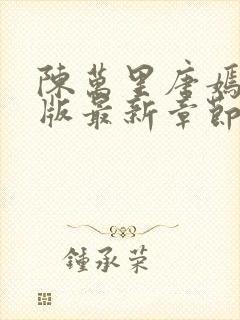 陳萬里唐嫣
版最新章節
鍾承荣